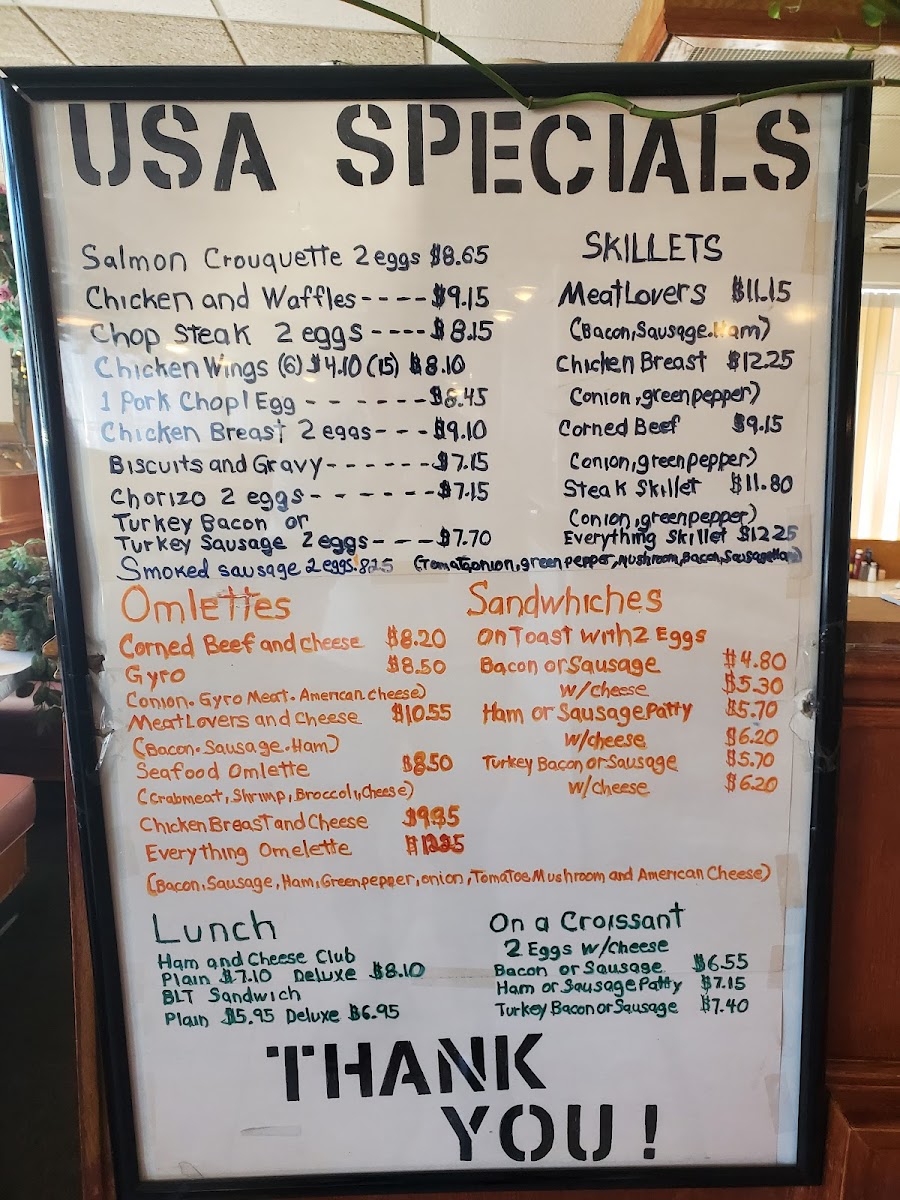 USA SPECIALS
Salmon Crouquette 2 eggs $8.65
Chicken and Waffles---- $9.15
Chop Steak 2 eggs ---- $8.15
Chicken Wings (6) $4.10 (15) $8.10
1 Pork Chop 1 Egg - - - - - - $8.45
Chicken Breast 2 eggs- - - $9.10
Biscuits and Gravy- - - - - - $7.15
Chorizo 2 eggs- - - - - - - $7.15
Turkey Bacon or
Turkey Sausage 2 eggs- - - $7.70
Smoked sausage 2 eggs. 8.25
SKILLETS
MeatLovers $11.15
(Bacon, Sausage. Ham)
Chicken Breast $12.25
(onion, green pepper)
Corned Beef $9.15
(onion, green pepper)
Steak Skillet $11.80
(onion, green pepper)
Everything Skillet $12.25
onion, green pepper, Mushroom, Bacon, Sausage Ham)
Omlettes
Corned Beef and Cheese $8.20
Gyro $8.50
(onion. Gyro Meat. American Cheese)
Meat Lovers and Cheese $10.55
(Bacon. Sausage. Ham)
Seafood Omlette $8.50
(Crabmeat, Shrimp, Broccoli, Cheese)
Chicken Breast and Cheese
Everything Omelette
(Bacon, Sausage, Ham, Greenpepper, onion, Tomatoe, Mushroom and American Cheese)
Sandwhiches
On Toast with 2 Eggs
Bacon or Sausage $4.80
w/cheese $5.30
Ham or Sausage Patty $5.70
w/cheese $6.20
Turkey Bacon or Sausage $5.70
w/cheese $6.20
Lunch
Ham and Cheese Club
Plain $7.10 Deluxe $8.10
BLT Sandwich
Plain $5.95 Deluxe $6.95
On a Croissant
2 Eggs w/Cheese
Bacon or Sausage $6.55
Ham or Sausage Patty $7.15
Turkey Bacon or Sausage $7.40
THANK
YOU!